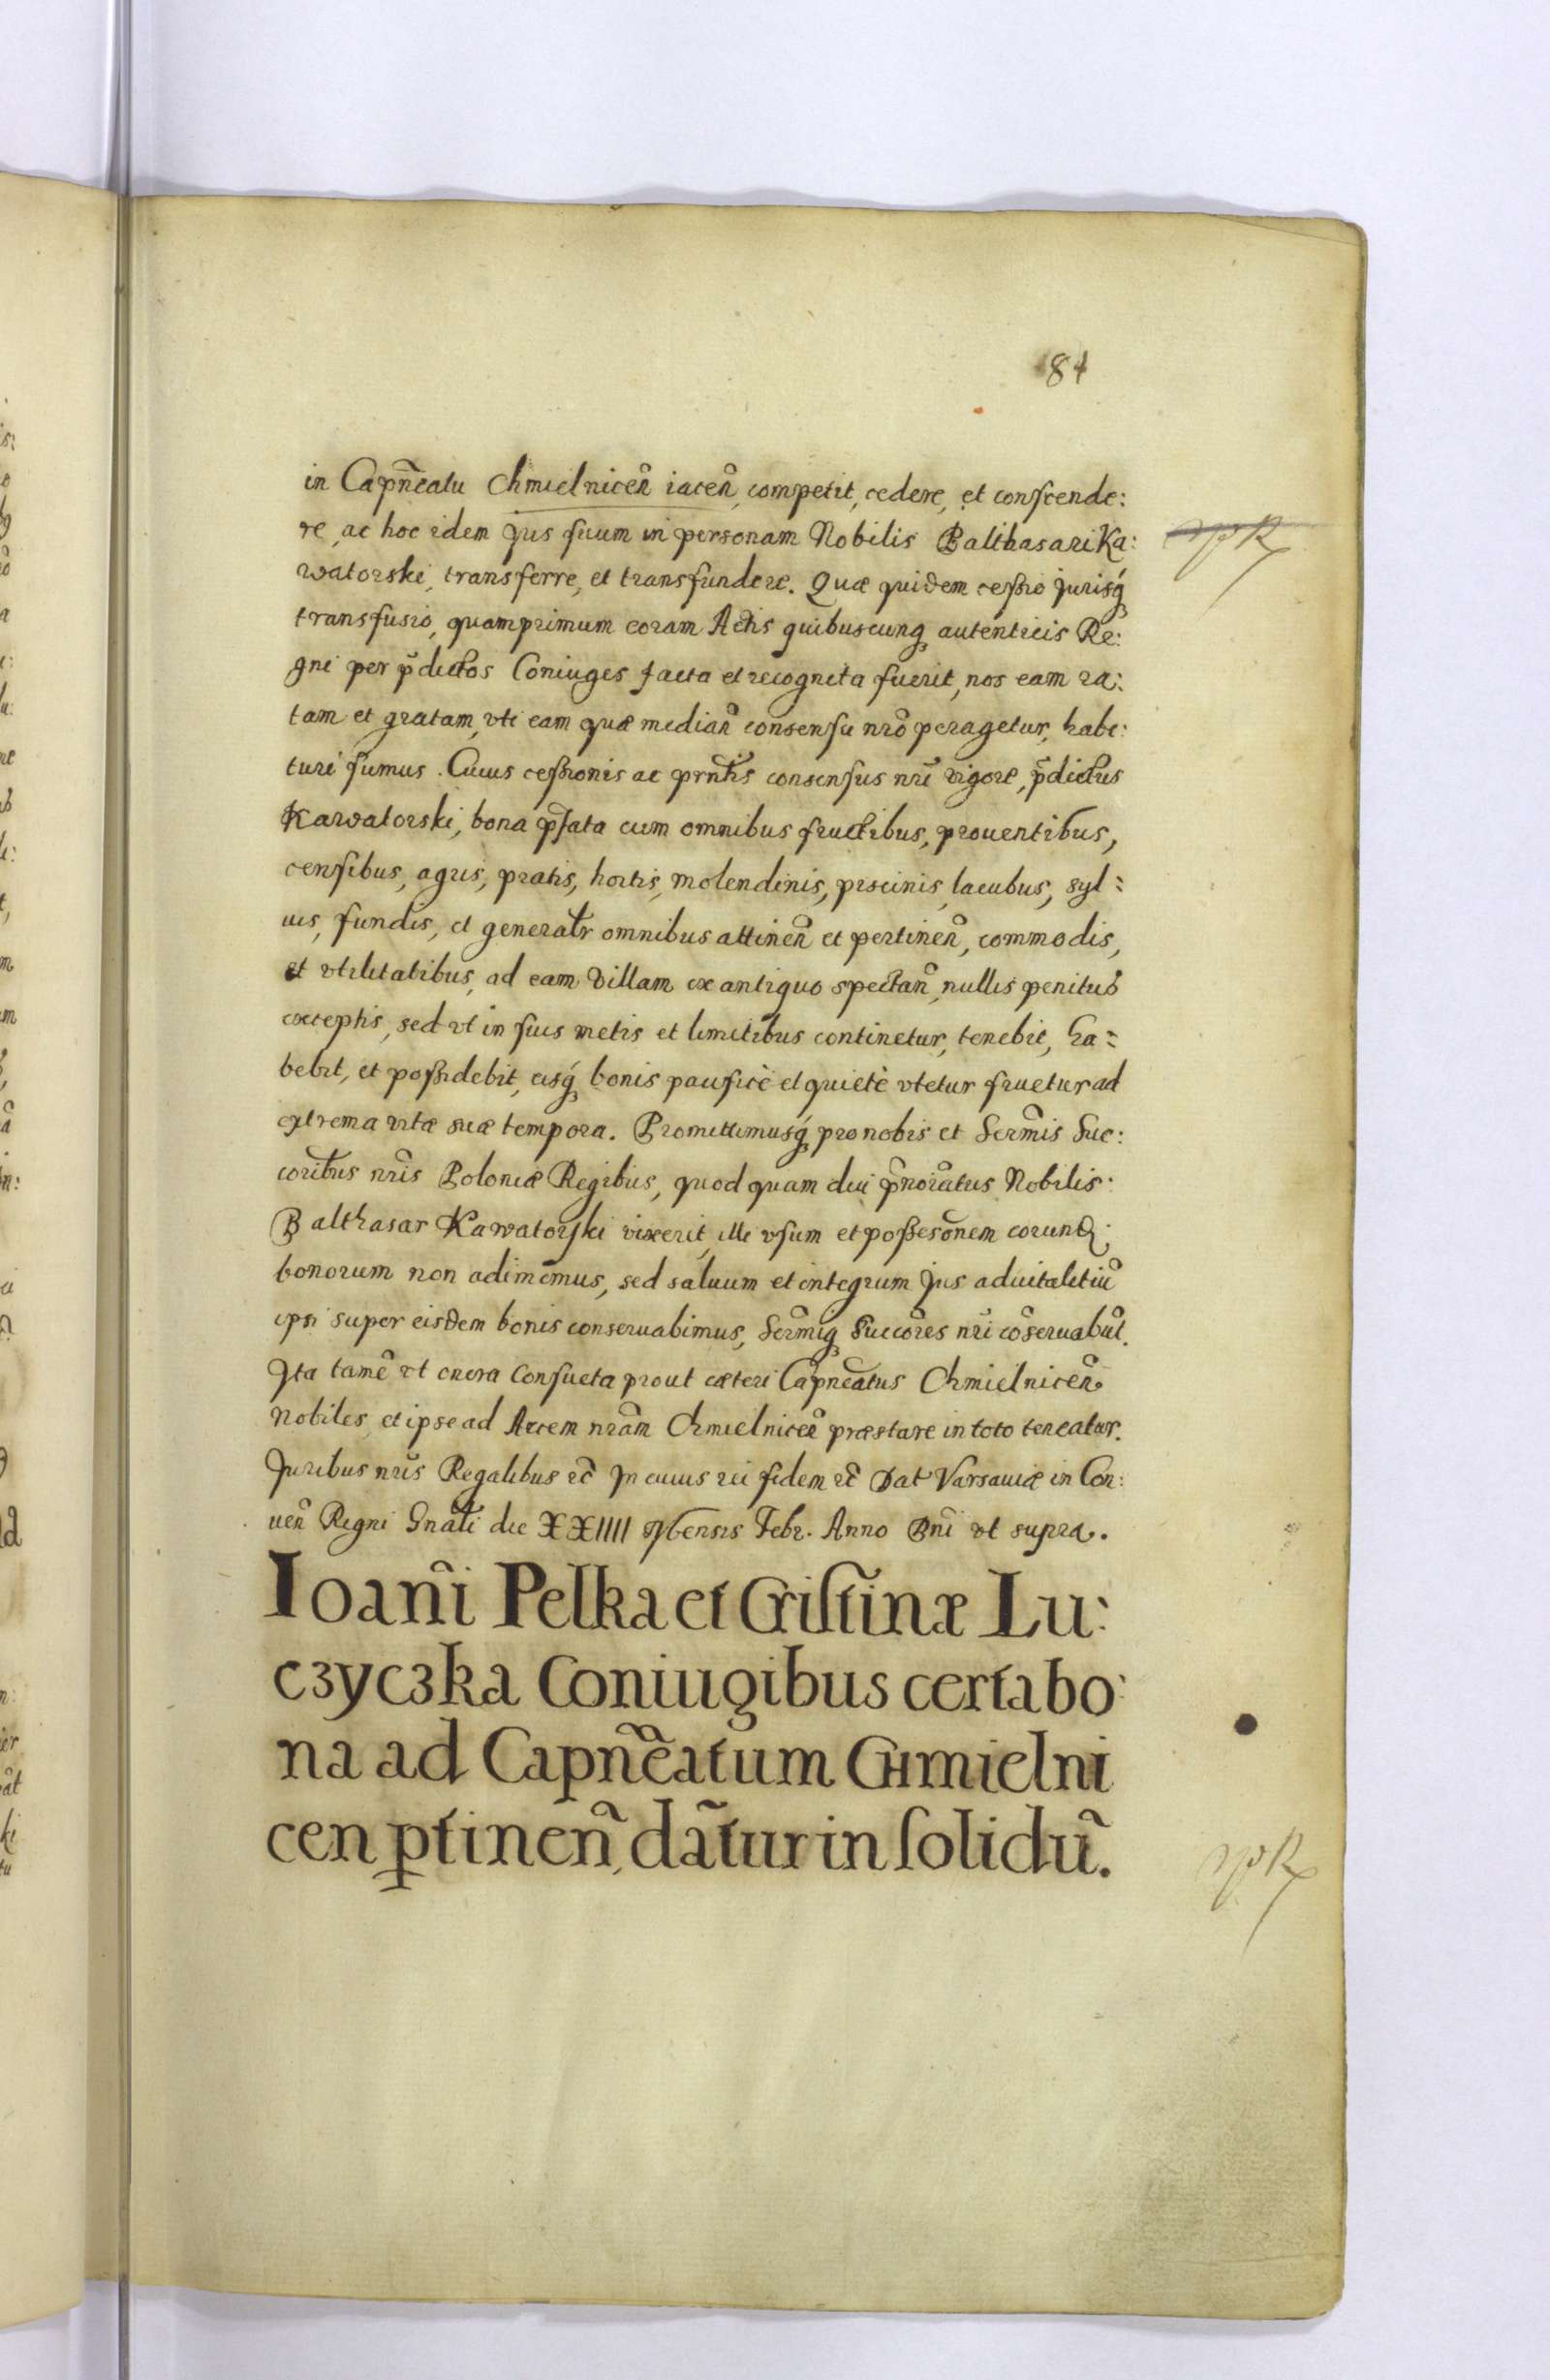 84
in Capñeatu Chmielniceñ iaceñ, competit, cedere, et conscende:
re, ac hoc idem Jus suum in personam Nobilis Balthasari Ka:
watorski, transferre, et transfundere. Quæ quidem cessio Jurisq́
transfusio, quamprimum coram Actis quibuscunq autenticis Re:
gni per p̃dictos Coniuges facta et recognita fuerit, nos eam ra:
tam et gratam, vti eam quæ mediañ consensu nrõ peragetur, habe:
turi sumus. Cuius cessionis ac prñtis consensus nrĩ vigore, p̃dictus
Kawatorski, bona p̃fata cum omnibus fructibus, prouentibus,
censibus, agris, pratis, hortis, molendinis, piscinis, lacubus, syl:
uis, fundis, et generatr̃ omnibus attineñ et pertineñ, commodis,
et vtilitatibus, ad eam villam ex antiquo spectañ, nullis penitus
exceptis, sed vt in suis metis et limitibus continetur, tenebit, ha:
bebit, et possidebit, eisq́ bonis pacificè et quietè vtetur fruetur ad
extrema vitæ suæ tempora. Promittimusq́ pro nobis et Serm̃is Suc:
coribus̃ nrĩs Poloniæ Regibus, quod quam diu p̃norãtus Nobilis
Balthasar Kawatorski vixerit, illi vsum et possesõnem eorund:
bonorum non adimemus, sed saluum et integrum Jus aduitalitiũ
ipsi super eisdem bonis conseruabimus, Serm̃iq Succõres nrĩ cõseruabũt.
Ita tamẽ vt onera Consueta prout cæteri Capneãtus Chmielniceñ
Nobiles, et ipse ad Arcem nrãm Chmielniceñ præstare in toto teneatur.
Juribus nrĩs Regalibus etc̃ In cuius rei fidem etc̃ Dat Varsauiæ in Con:
ueñ Regni Gnãli die XXIIII Mensis Febr. Anno Dnĩ vt supra.
Ioañi Pelka et Cristinæ Lu:
czyczka Coniugibus certa bo:
na ad Capñeatum Chmielni
cen ptineñ, dãtur in solidũ.